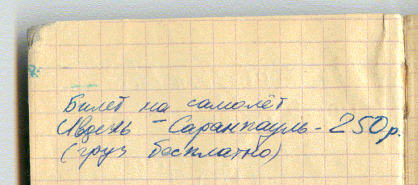 Билет на самолёт
Ивдель - Саранпауль - 250 р.
(груз бесплатно)